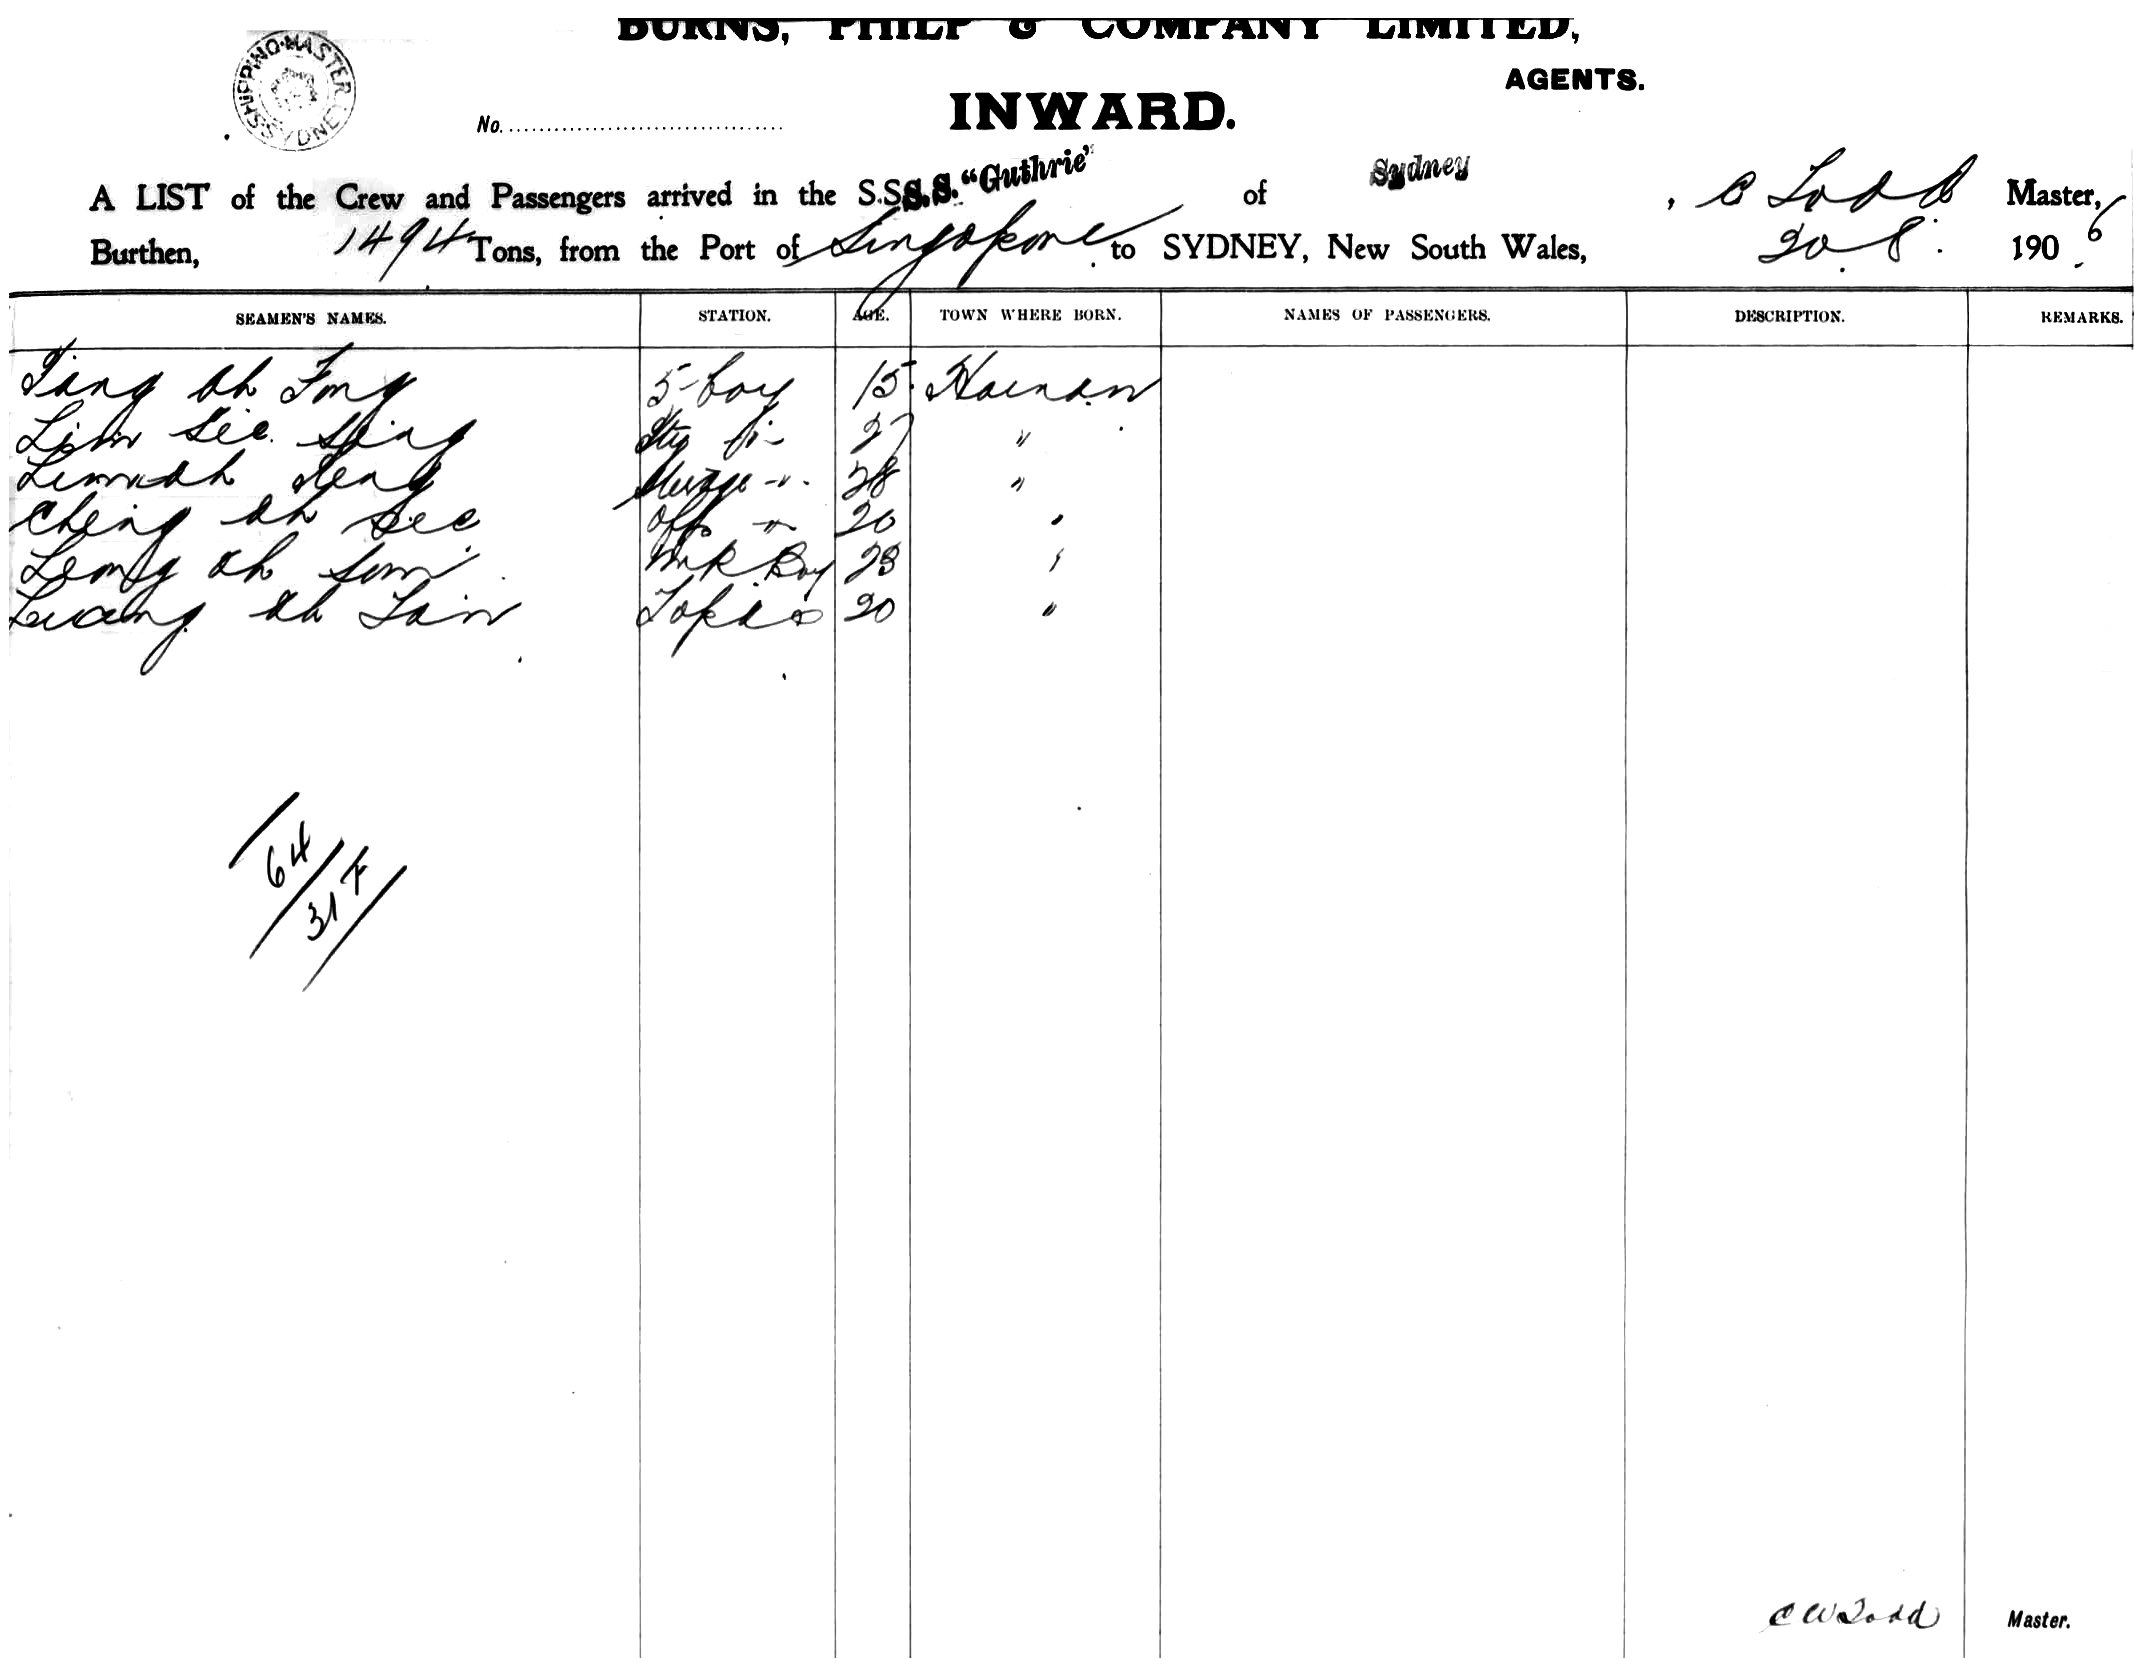 BURNS, PHILP & COMPANY LIMITED,
AGENTS.
SHIPPING MASTER SYDNEY
No.
INWARD.
A LIST of the Crew and Passengers arrived in the S.S. S.S. "Guthrie" of Sydney, C Todd Master,
Burthen, 1494 Tons, from the Port of Singapore to SYDNEY, New South Wales, 20.8. 1906
SEAMEN'S NAMES. STATION. AGE. TOWN WHERE BORN. NAMES OF PASSENGERS. DESCRIPTION. REMARKS.
Tang Ah Fong boy 15 Hainan
Lim See 27 "
Lim Ah Seng 28 "
Cheng Ah See 20 "
Leong Ah Sum Boy 23 "
Ah Topas 20 "
64
317
C W Todd Master.